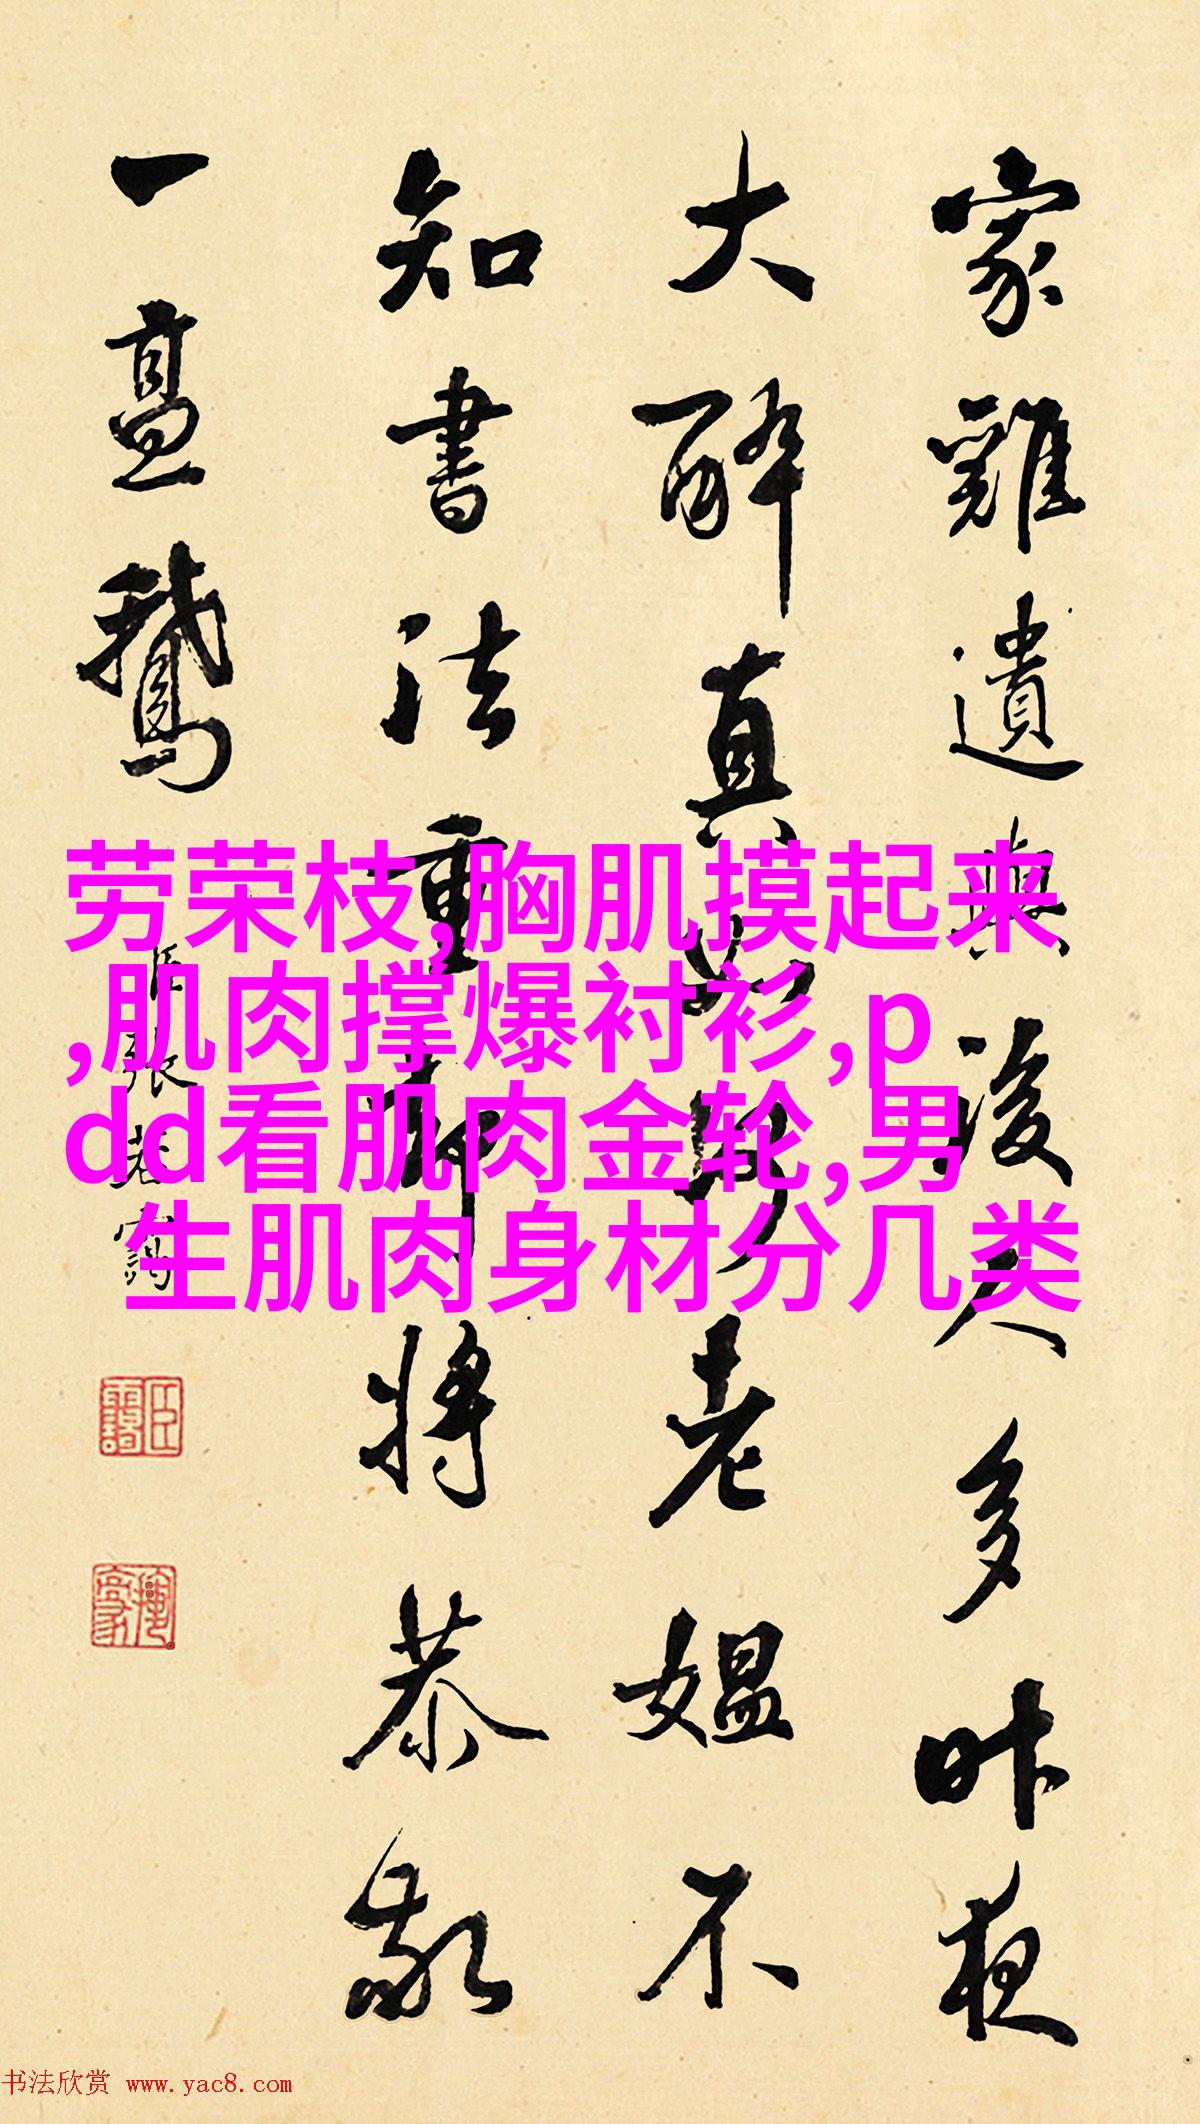 家雞遺與後人多昨夜
大醉真如老媼不
知書法重却將恭敬
一鵝
臣張
劳荣枝,胸肌摸起来
,肌肉撑爆衬衫,p
dd看肌肉金轮,男
生肌肉身材分几类
书法欣赏 www.yac8.com